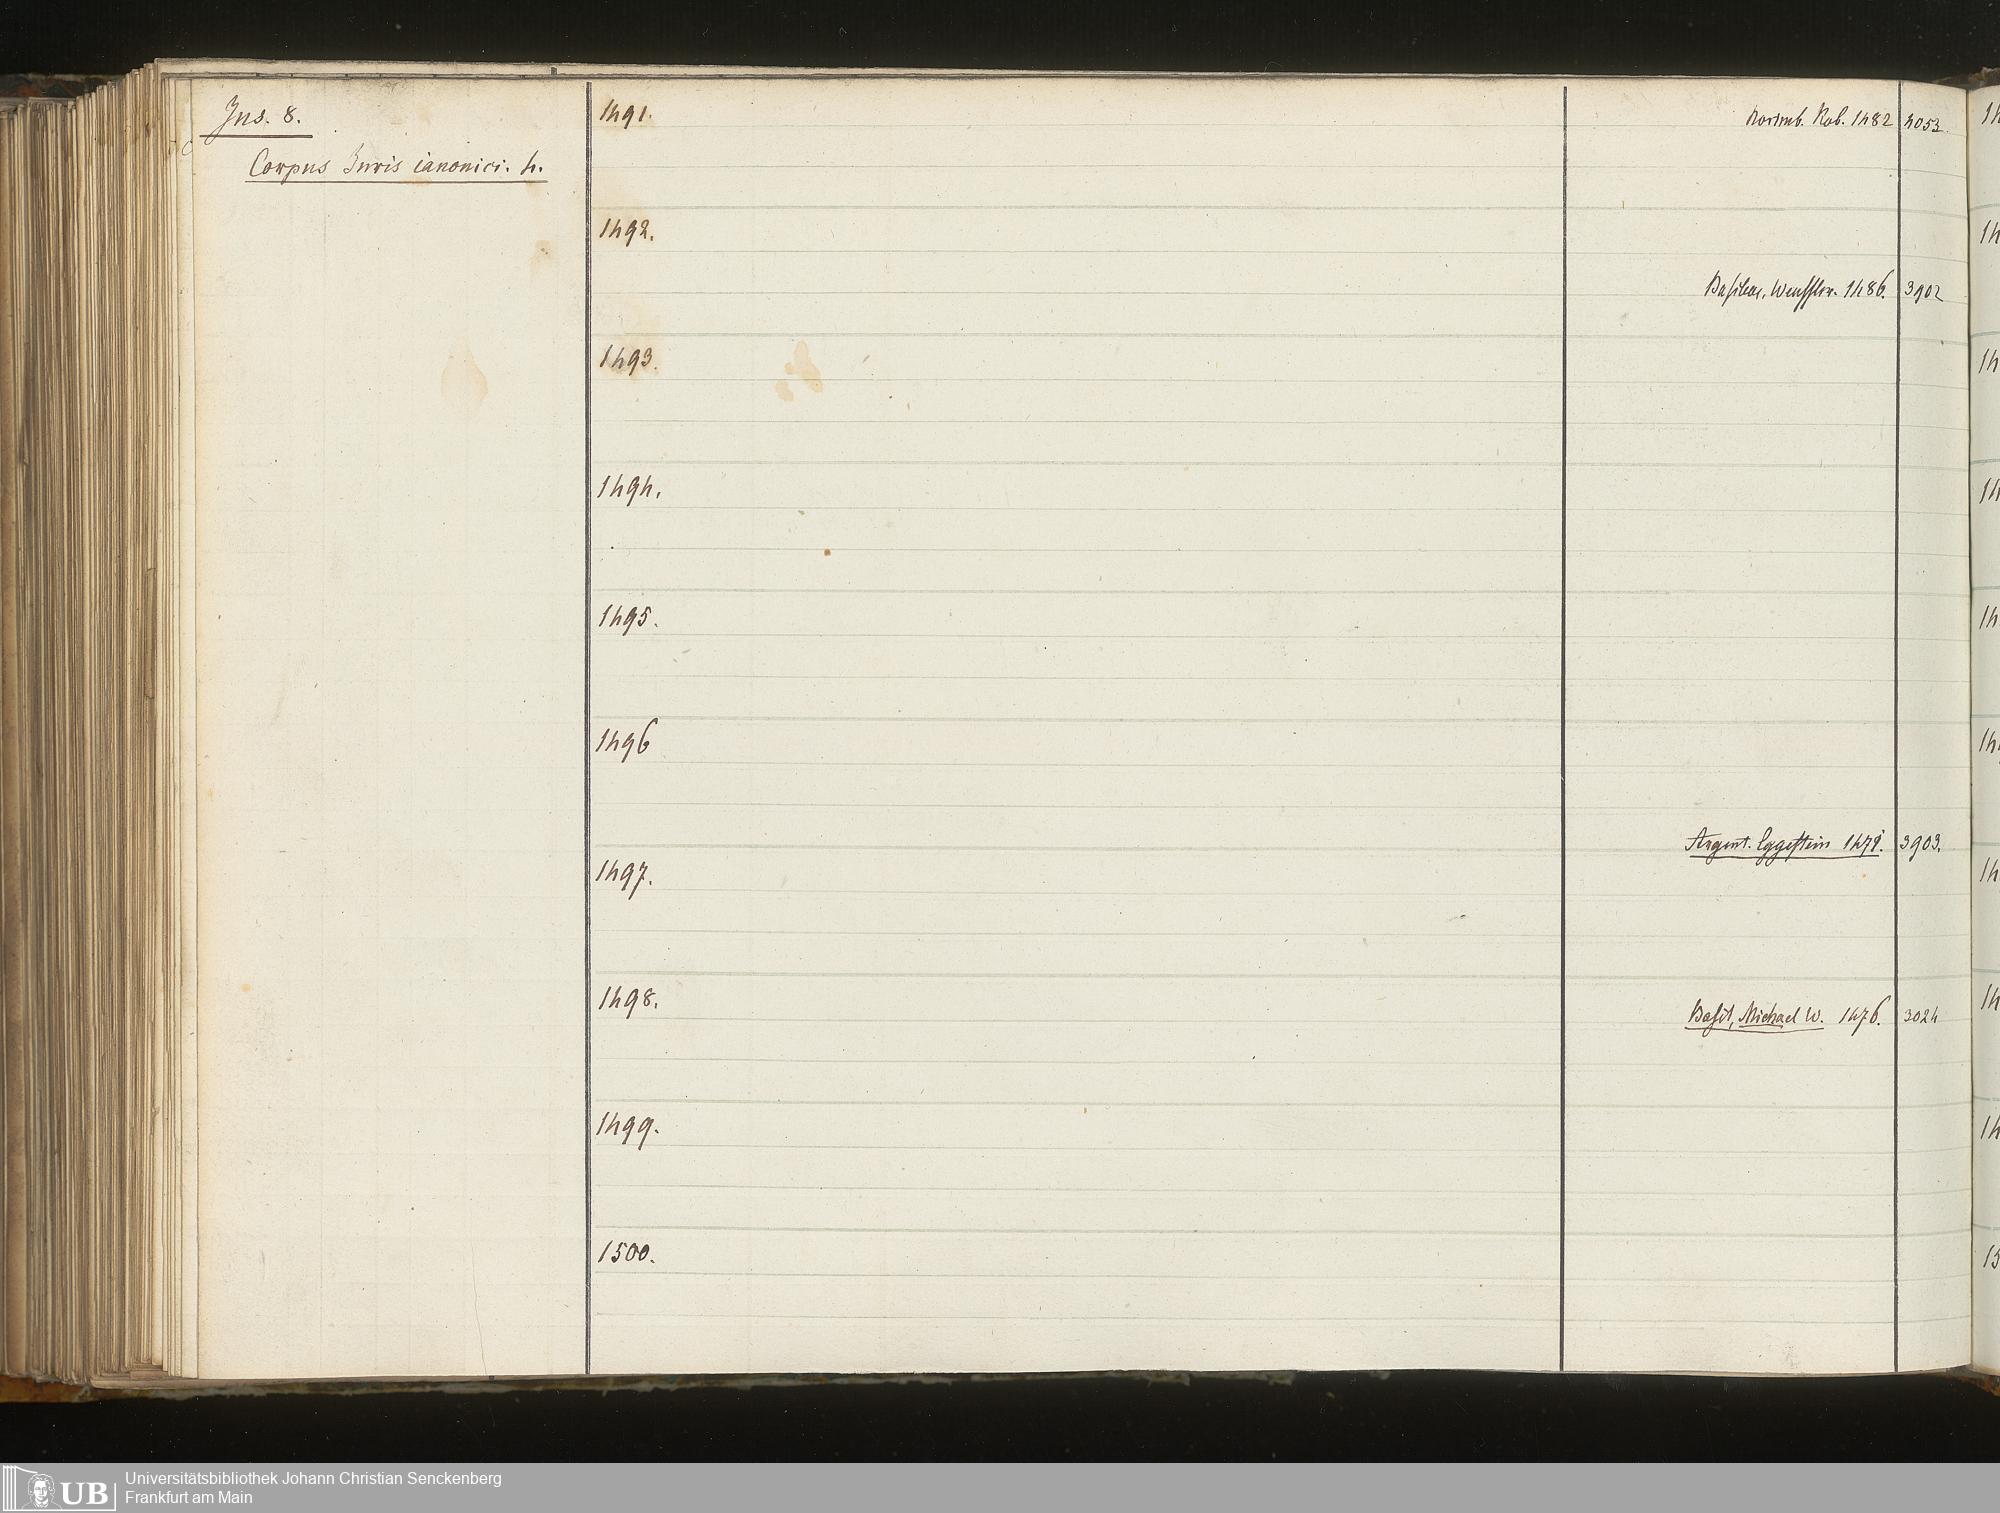 Jus. 8.
Corpus Juris canonici. 4.
1491.
Norimb. Kob. 1482 4053.
1492.
Basileae, Wenssler. 1486. 3902
1493.
1494.
1495.
1496
Argent. Eggestein 1471. 3903.
1497.
1498.
Basil, Michael W. 1476. 3024
1499.
1500.
14
14
14
14
14
14
14
14
14
15
UB
Universitätsbibliothek Johann Christian Senckenberg
Frankfurt am Main